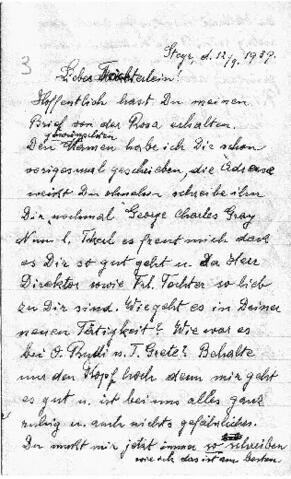 3
Steyr, d. 12/9. 1939.
Liebes Töchterlein!
Hoffentlich hast Du meinen
Brief von der Rosa erhalten.
gewünschten
Den Namen habe ich Dir schon
voriges mal geschrieben, die Adresse
weißt Du ohnehin schreibe ihn
Dir nochmal George Charles Gray
Nun l. Theel es freut mich das
es Dir so gut geht u. Da Herr
Direktor sowie Frl. Tochter so lieb
zu Dir sind. Wie geht es in Deiner
neuen Tätigkeit? Wie war es
bei O. Rudi u. T. Grete? Behalte
nur den Kopf hoch denn mir geht
es gut u. ist bei uns alles ganz
ruhig u. auch nichts gefährliches.
Du mußt mir jetzt immer so schreiben
wie ich das ist am besten.